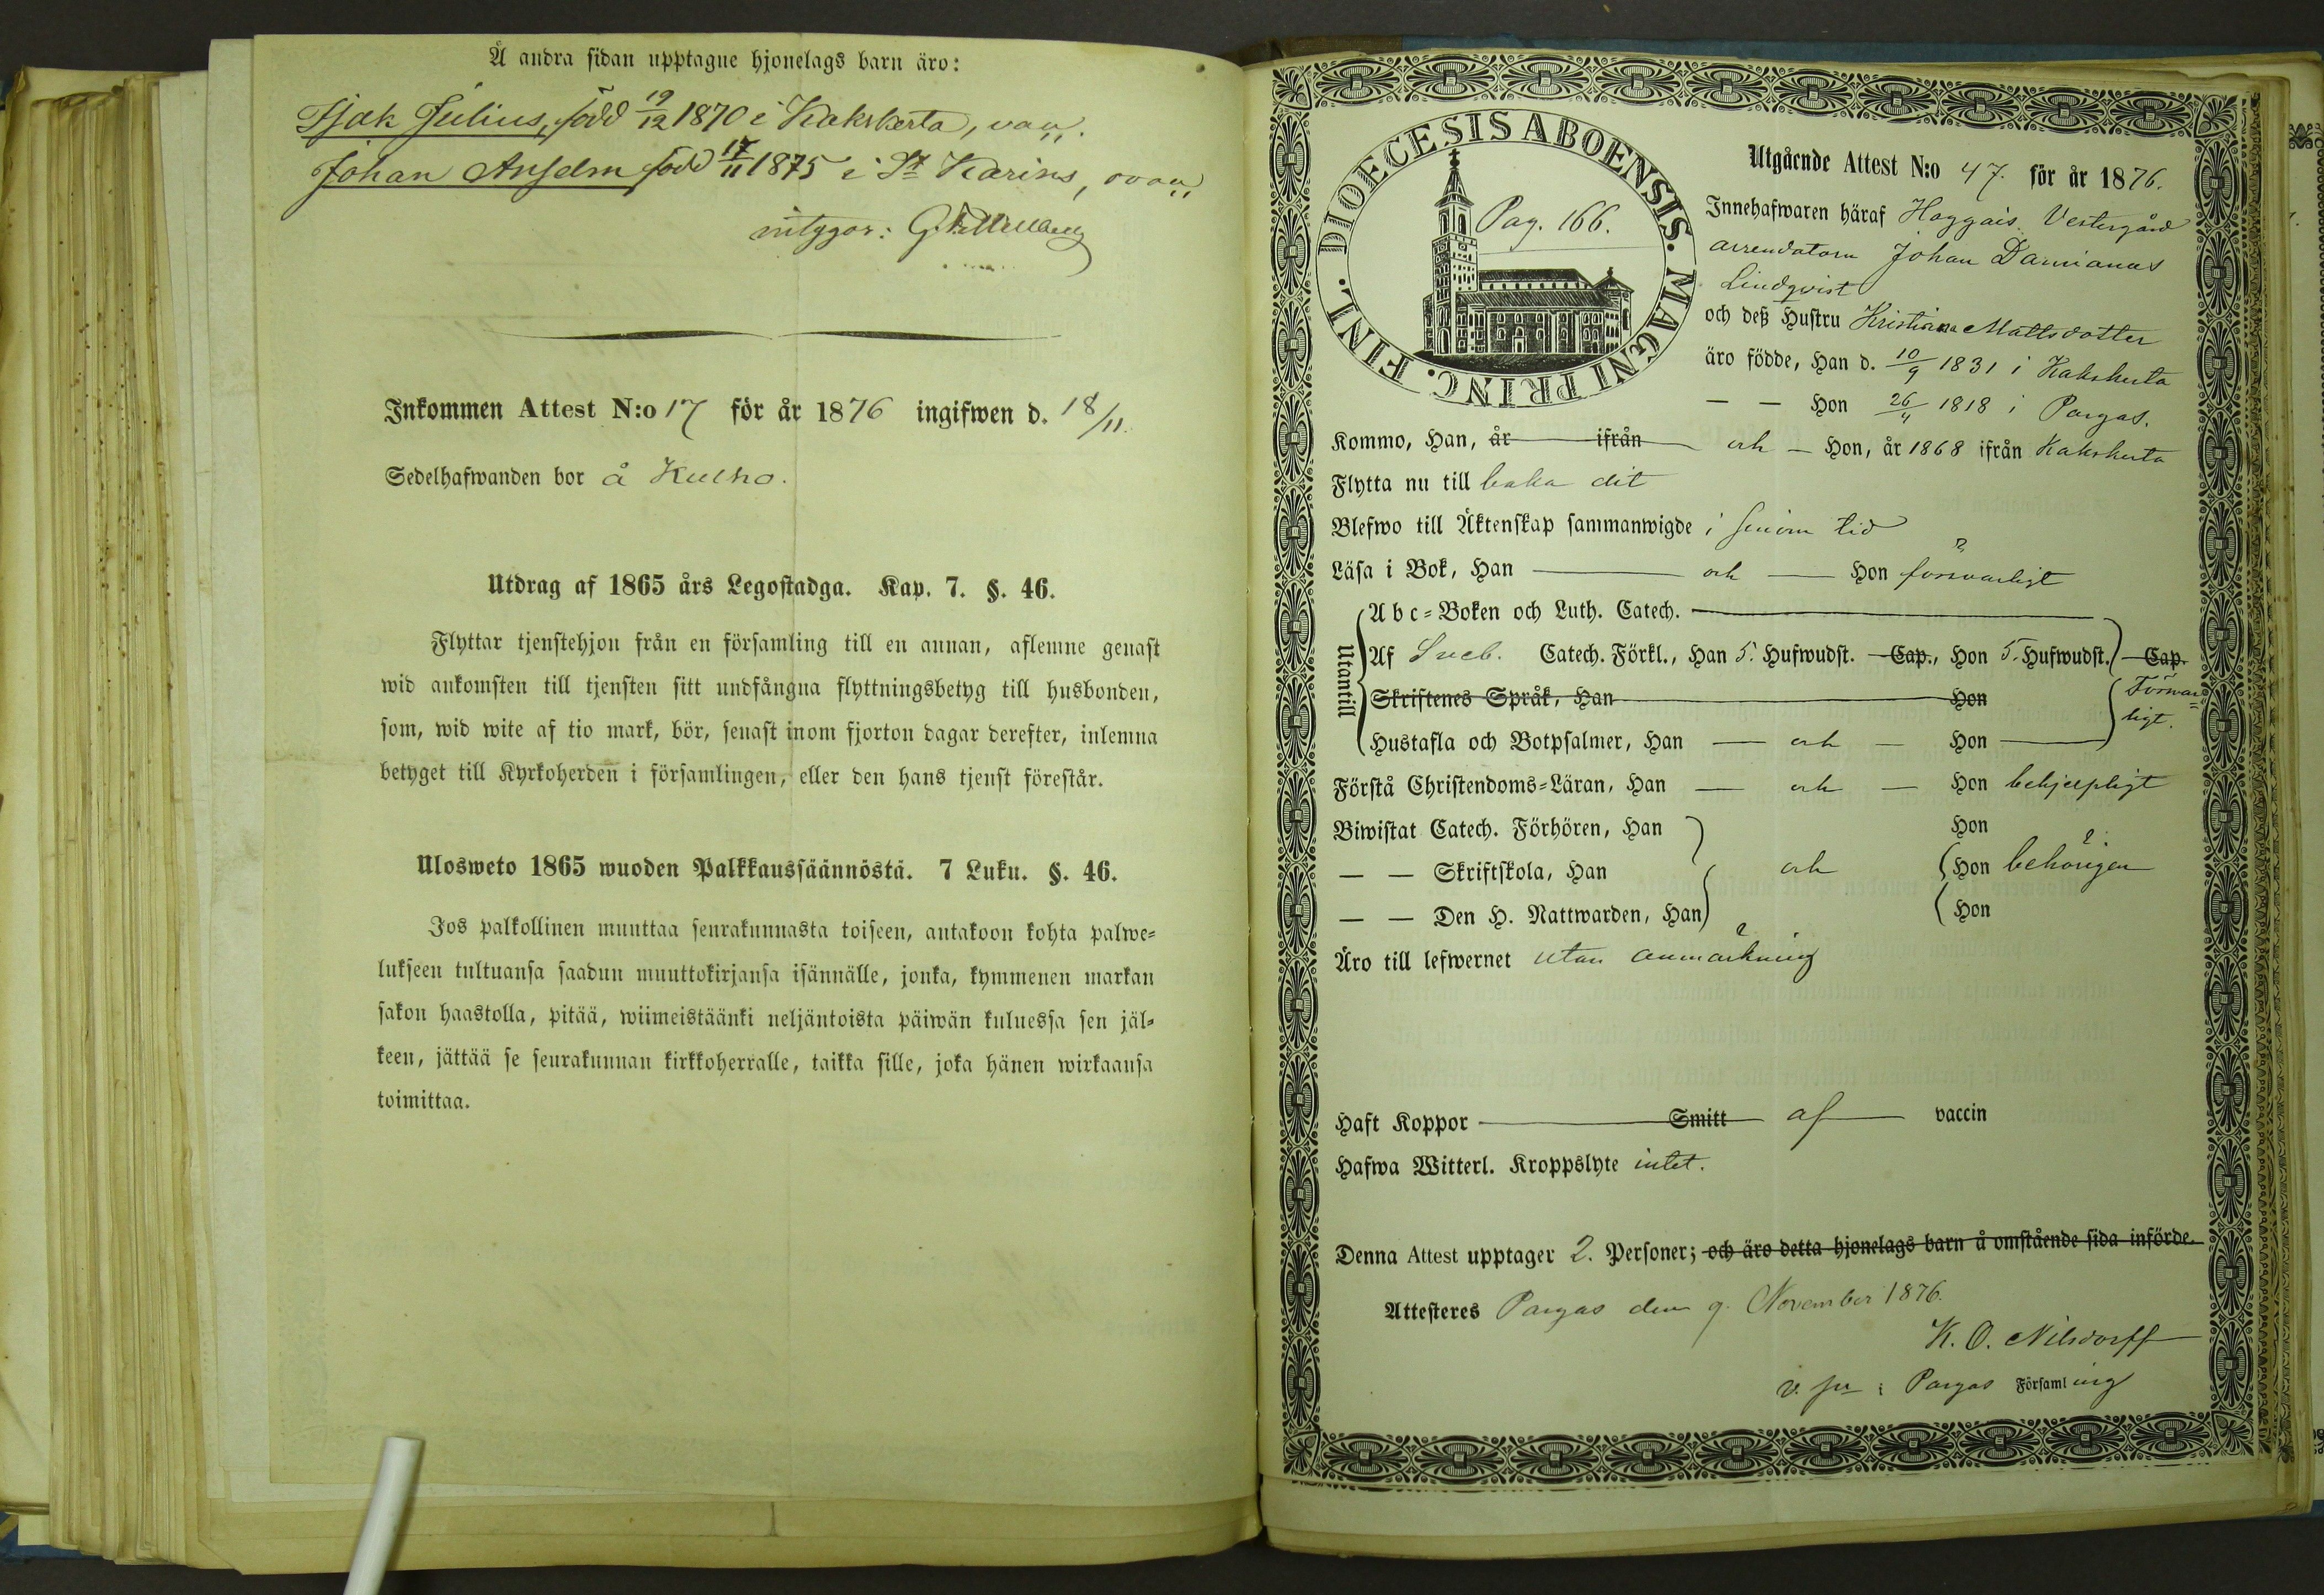 Å andra sidan upptagne hjonelags barn äro:
Isak Julius, född 19/12 1870 i Kakskerta, vac.
Johan Anselm född 17/11 1875 i St Karins, ovac.
intygar:
Inkommen Attest N:o 17 för år 1876 ingifwen d. 18/11.
Sedelhafwanden bor å Kulho.
Utdrag af 1865 års Legostadga. Kap. 7. §. 46.
Flyttar tjenstehjon från en församling till en annan, aflemne genast
wid ankomsten till tjensten sitt undfångna flyttningsbetyg till husbonden,
som, wid wite af tio mark, bör, senast inom fjorton dagar derefter, inlemna
betyget till Kyrkoherden i församlingen, eller den hans tjenst förestår.
Ulosweto 1865 wuoden Palkkaussäännöstä. 7 Luku. §. 46.
Jos palkollinen muuttaa seurakunnasta toiseen, antakoon kohta palwe=
lukseen tultuansa saadun muuttokirjansa isännälle, jonka, kymmenen markan
sakon haastolla, pitää, wiimeistäänki neljäntoista päiwän kuluessa sen jäl=
keen, jättää se seurakunnan kirkkoherralle, taikka sille, joka hänen wirkaansa
toimittaa.
DIOECESIS ABOENSIS. MAGNI PRINC. FINL.
Pag. 166.
Utgående Attest N:o 47. för år 1876.
Innehafwaren häraf Haggais Vestergård
arrendatorn Johan Damianus
Lindqvist
och deß Hustru Kristina Mattsdotter
äro födde, Han d. 10/9 1831 i Kakskerta
— — Hon 26/11 1818 i Pargas.
Kommo, Han, år ifrån och — Hon, år 1868 ifrån Kakskerta
Flytta nu till baka dit
Blefwo till Äktenskap sammanwigde i tid
Läsa i Bok, Han och — Hon försvarligt
Utantill
Abc=Boken och Luth. Catech.
Af Sveb. Catech. Förkl., Han 5. Hufwudst. Cap., Hon 5. Hufwudst. Cap.
Skriftenes Språk, Han Hon
Försvar=
ligt.
Hustafla och Botpsalmer, Han — och — Hon
Förstå Christendoms=Läran, Han — och — Hon behjelpligt
Biwistat Catech. Förhören, Han Hon
— — Skriftskola, Han och Hon behörigen
— — Den H. Nattwarden, Han Hon
Äro till lefwernet utan anmärkning
Haft Koppor Smitt af vaccin
Hafwa Witterl. Kroppslyte intet.
Denna Attest upptager 2. Personer; och äro detta hjonelags barn å omstående sida införde.
Attesteres Pargas den 9. November 1876.
K. O. Nilsdorff
v. i Pargas Församling